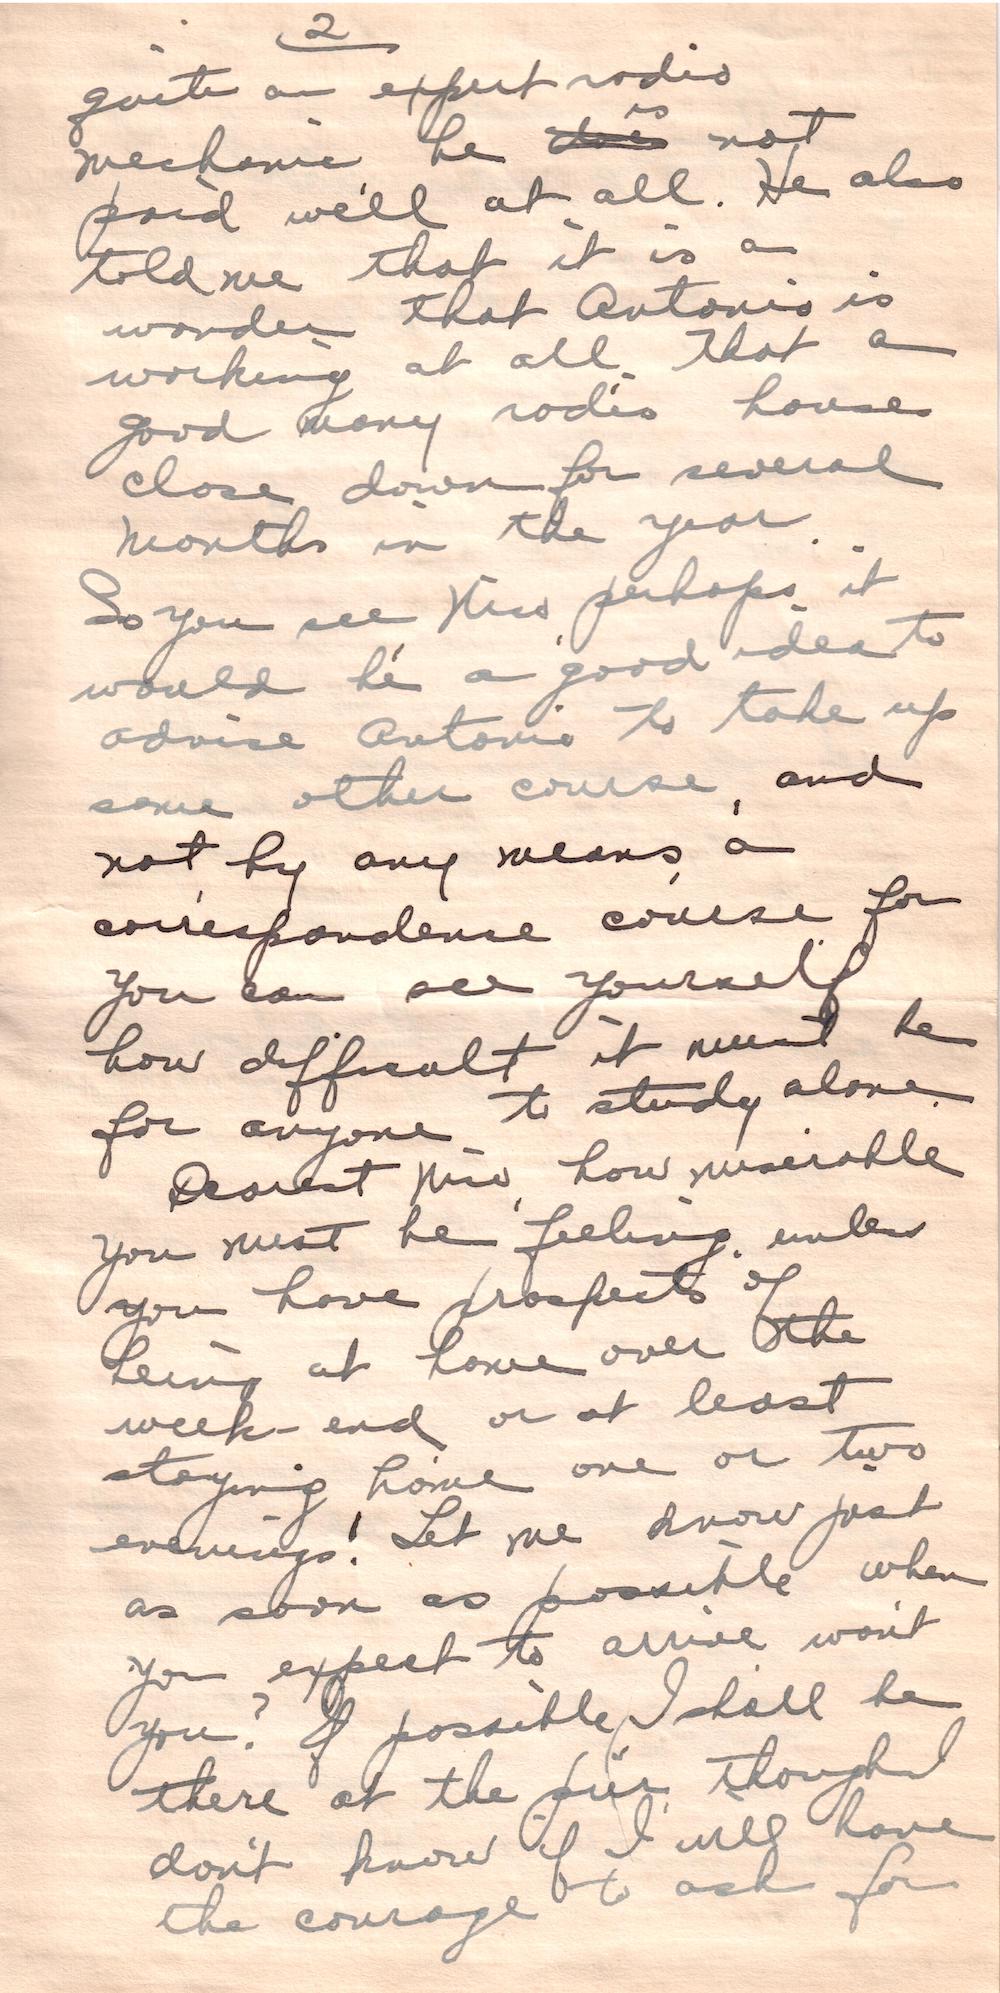 2
quite an expert radio
mechanic, he does is not
paid well at all. He also
told me that it is a
wonder that Antonio is
working at all. That a
good many radio houses
close down for several
months in the year.
So you see Niso perhaps it
would be a good idea to
advise Antonio to take up
some other course, and
not by any means, a
correspondence course for
you can see yourself
how difficult it must be
for anyone to study alone.
Dearest Niso, how miserable
you must be feeling, unless
you have prospects of
being at home over the
week-end or at least
staying home one or two
evenings! Let me know just
as soon as possible when
you expect to arrive won't
you? If possible, I shall be
there at the pier though I
don't know if I will have
the courage to ask for